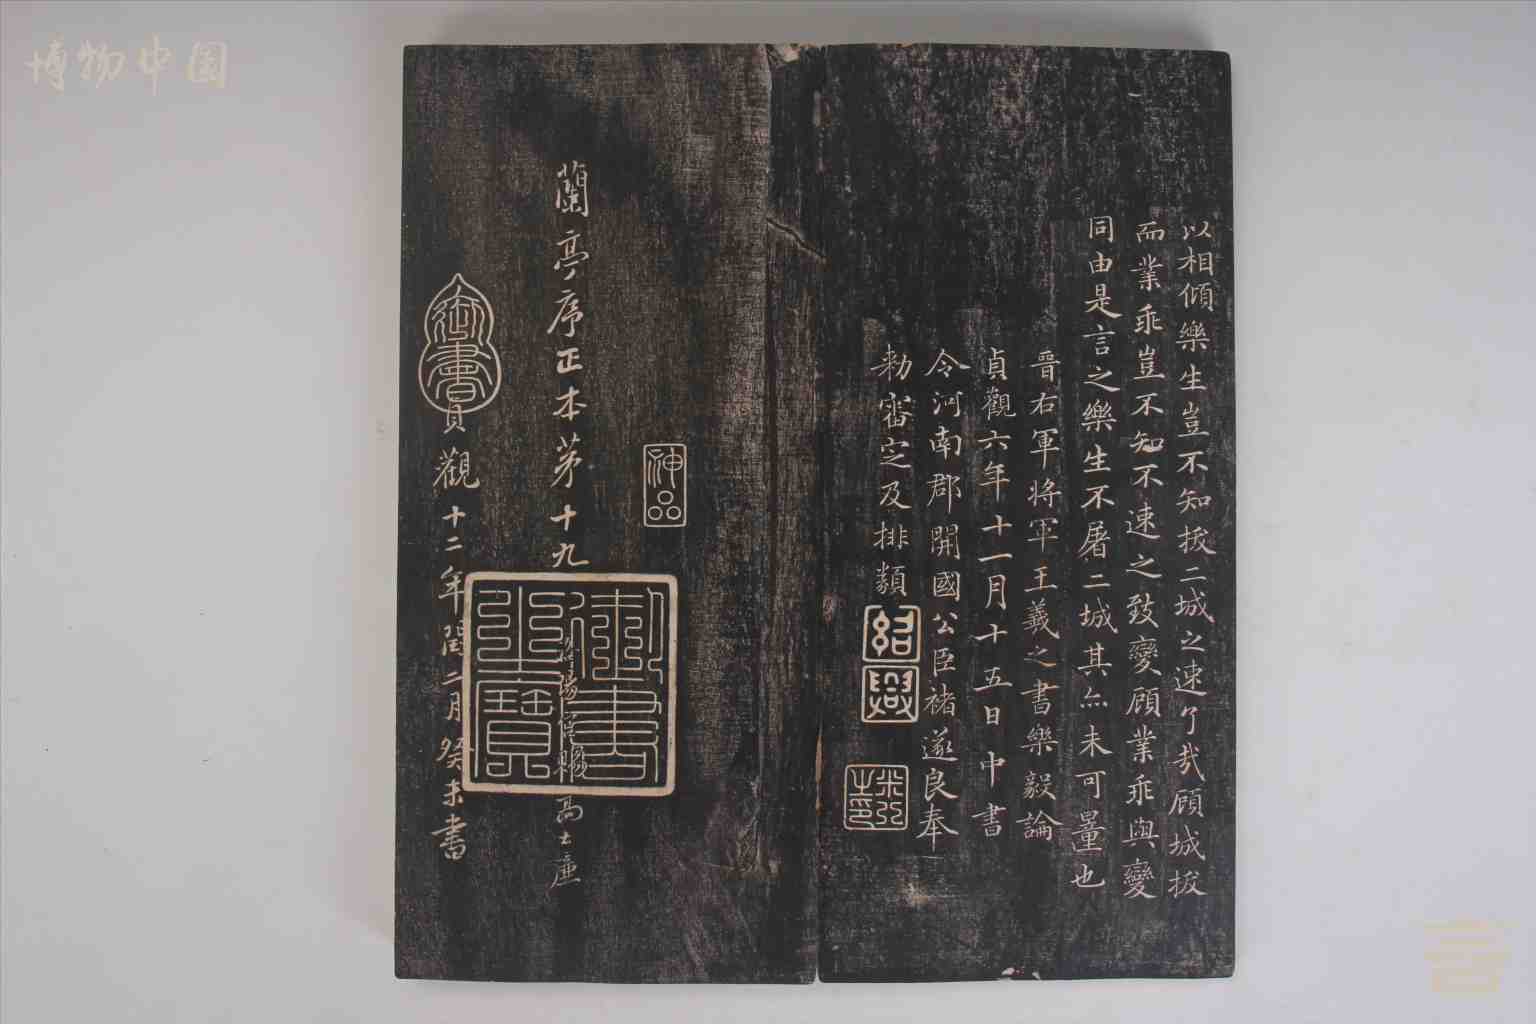 博物中国
以相傾樂生豈不知拔二城之速了哉顧城拔
而業乖豈不知不速之致變顧業乖與變
同由是言之樂生不屠二城其亦未可量也
晉右軍將軍王羲之書樂毅論
貞觀六年十一月十五日中書
令河南郡開國公臣褚遂良奉
勅審定及排類
紹興
米芾之印
神品
蘭亭序正本苐十九
賜高士廉
御書之寶
御書
貞觀十二年閏二月癸未書